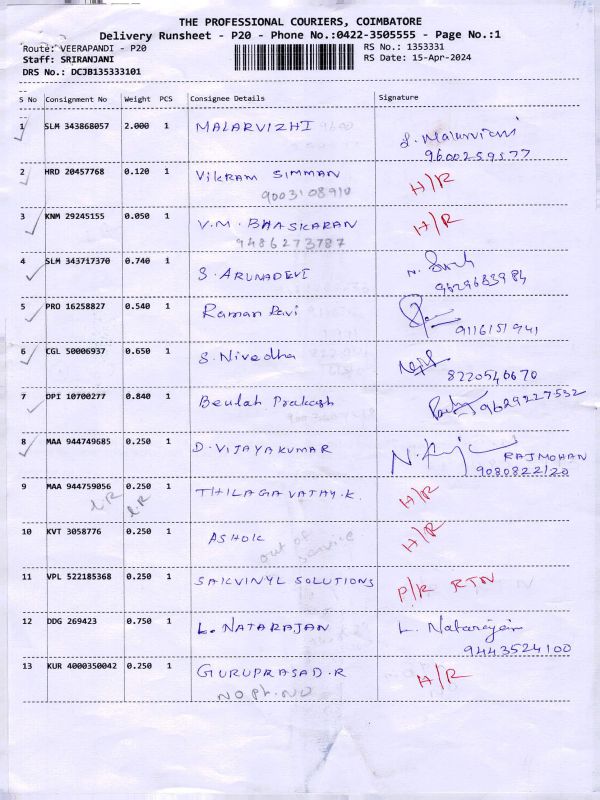 THE PROFESSIONAL COURIERS, COIMBATORE
Delivery Runsheet - P20 - Phone No.:0422-3505555 - Page No.:1
Route: VEERAPANDI - P20
RS No.: 1353331
Staff: SRIRANJANI
RS Date: 15-Apr-2024
DRS No.: DCJB135333101
S No Consignment No Weight PCS Consignee Details Signature
1 SLM 343868057 2.000 1 MALARVIZHI
9600259577
2 HRD 20457768 0.120 1 VIKRAM SIMMAN H/R
9003108910
3 KNM 29245155 0.050 1 V.M. BHASKARAN H/R
9486273787
4 SLM 343717370 0.740 1 S. ARUNADEVI
5 PRO 16258827 0.540 1 Raman Ravi
9116151941
6 CGL 50006937 0.650 1 S. Nivedha
8220540670
7 DPI 10700277 0.840 1 Beulah Prakash 9629227532
8 MAA 944749685 0.250 1 D. VIJAYAKUMAR
RAJMOHAN
9080822120
9 MAA 944759056 0.250 1 THILAGAVATHY.K. H/R
10 KVT 3058776 0.250 1 ASHOK H/R
out of
service
11 VPL 522185368 0.250 1 SAKVINYL SOLUTIONS P/R RTN
12 DDG 269423 0.750 1 L. NATARAJAN L. Natarajan
9443524100
13 KUR 4000350042 0.250 1 GURUPRASAD.R H/R
NO Ph. NO